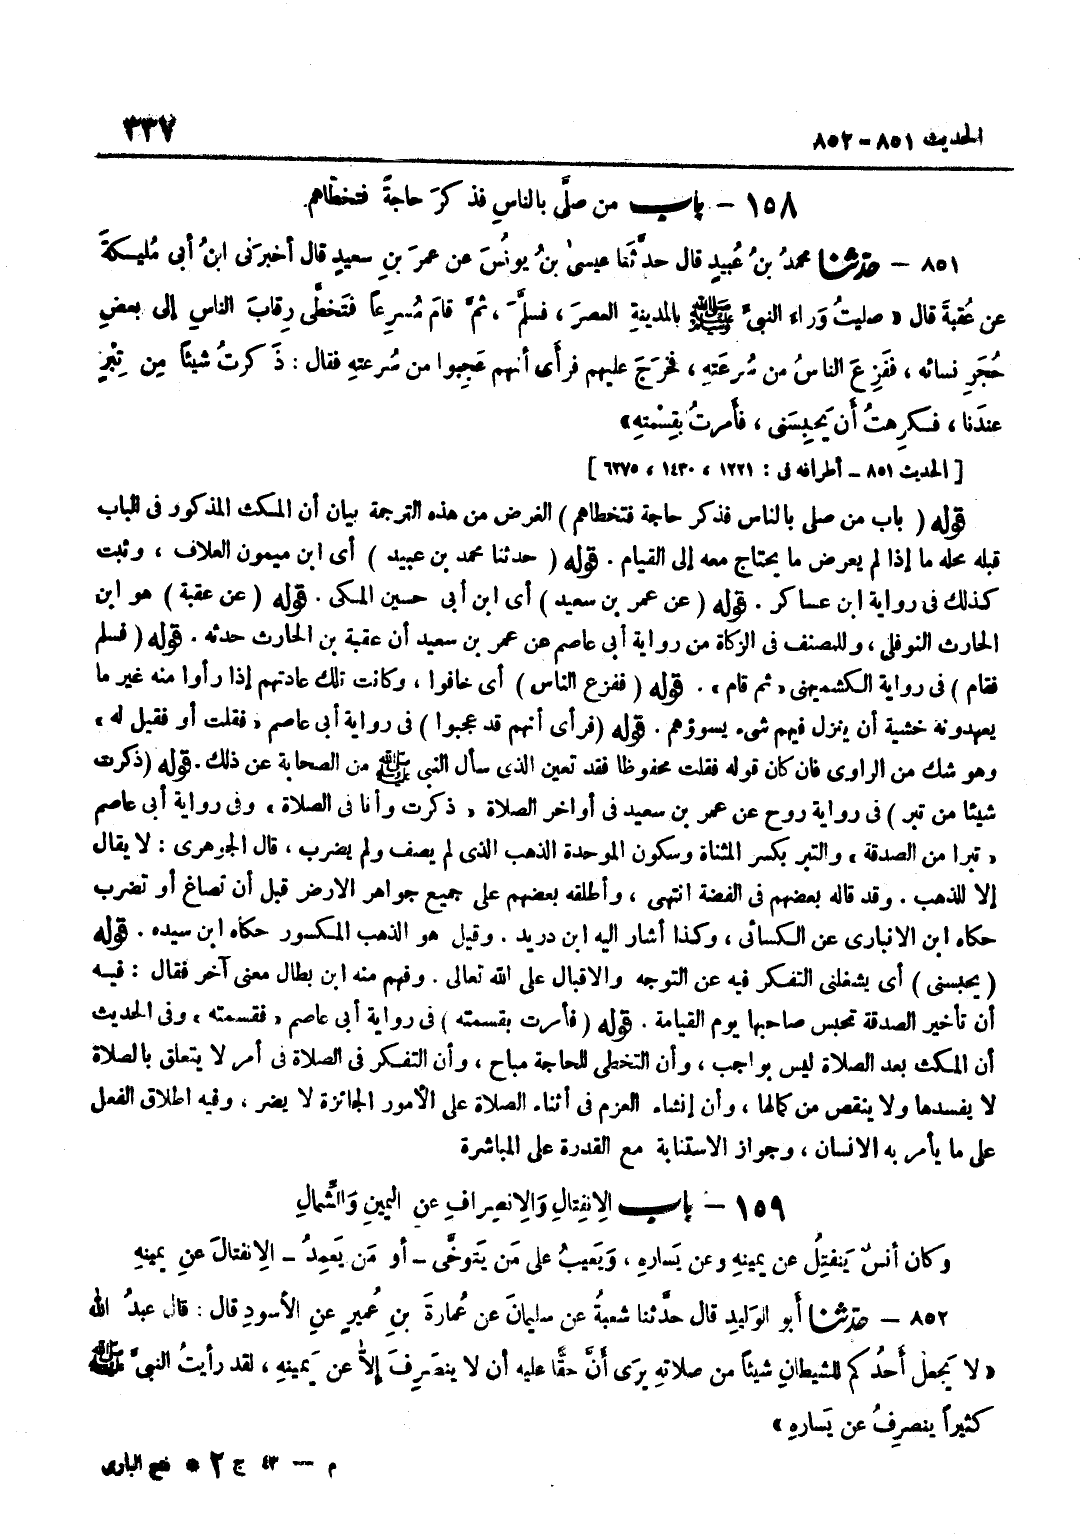 الحديث ٨٥١ - ٨٥٢
٣٣٧
١٥٨ - باب من صلَّى بالناسِ فذكرَ حاجةً فتخطاهم
٨٥١ - حدثنا محمدُ بنُ عُبيدٍ قال حدَّثَنا عيسىٰ بنُ يونُسَ عن عمرَ بنِ سعيدٍ قال أخبرَنى ابنُ أبى مُليكةَ
عن عُقبةَ قال « صليتُ وَراء النبىِّ ﷺ بالمدينةِ العصرَ ، فسلَّمَ ، ثمَّ قامَ مُسرِعاً فتَخطَّى رِقابَ الناسِ إلى بعضِ
حُجَرِ نسائه ، ففَزِعَ الناسُ من سُرعَتهِ ، فخرَجَ عليهم فرأَى أنهم عَجِبوا من سُرعتهِ فقال : ذَكرتُ شيئاً مِن تِبْرٍ
عندَنا ، فكرِهتُ أن يَحبِسَنى ، فأَمرتُ بقِسْمتهِ »
[ الحديث ٨٥١ - أطرافه فى : ١٢٢١ ، ١٤٣٠ ، ٦٢٧٥ ]
قوله ( باب من صلى بالناس فذكر حاجة فتخطاهم ) الغرض من هذه الترجمة بيان أن المكث المذكور فى الباب
قبله محله ما إذا لم يعرض ما يحتاج معه إلى القيام . قوله ( حدثنا محمد بن عبيد ) أى ابن ميمون العلاف ، وثبت
كذلك فى رواية ابن عساكر . قوله ( عن عمر بن سعيد ) أى ابن أبى حسين المكى . قوله ( عن عقبة ) هو ابن
الحارث النوفلى ، وللمصنف فى الزكاة من رواية أبى عاصم عن عمر بن سعيد أن عقبة بن الحارث حدثه . قوله ( فسلم
فقام ) فى رواية الكشميهنى « ثم قام » . قوله ( ففزع الناس ) أى خافوا ، وكانت تلك عادتهم إذا رأوا منه غير ما
يعهدونه خشية أن ينزل فيهم شىء يسوؤهم . قوله ( فرأى أنهم قد عجبوا ) فى رواية أبى عاصم « فقلت أو فقيل له »
وهو شك من الراوى فان كان قوله فقلت محفوظا فقد تعين الذى سأل النبى ﷺ من الصحابة عن ذلك . قوله ( ذكرت
شيئا من تبر ) فى رواية روح عن عمر بن سعيد فى أواخر الصلاة « ذكرت وأنا فى الصلاة » وفى رواية أبى عاصم
« تبرا من الصدقة » والتبر بكسر المثناة وسكون الموحدة الذهب الذى لم يصف ولم يضرب ، قال الجوهرى : لا يقال
إلا للذهب . وقد قاله بعضهم فى الفضة انتهى ، وأطلقه بعضهم على جميع جواهر الارض قبل أن تصاغ أو تضرب
حكاه ابن الانبارى عن الكسائى ، وكذا أشار اليه ابن دريد . وقيل هو الذهب المكسور حكاه ابن سيده . قوله
( يحبسنى ) أى يشغلنى التفكر فيه عن التوجه والاقبال على الله تعالى . وفهم منه ابن بطال معنى آخر فقال : فيه
أن تأخير الصدقة تحبس صاحبها يوم القيامة . قوله ( فأمرت بقسمته ) فى رواية أبى عاصم « فقسمته » وفى الحديث
أن المكث بعد الصلاة ليس بواجب ، وأن التخطى للحاجة مباح ، وأن التفكر فى الصلاة فى أمر لا يتعلق بالصلاة
لا يفسدها ولا ينقص من كمالها ، وأن إنشاء العزم فى أثناء الصلاة على الأمور الجائزة لا يضر ، وفيه اطلاق الفعل
على ما يأمر به الانسان ، وجواز الاستنابة مع القدرة على المباشرة
١٥٩ - باب الِانفِتالِ وَالِانصِرافِ عنِ اليمينِ وَالشَّمالِ
وكان أنسٌ يَنفتِلُ عن يمينهِ وعن يَسارهِ ، وَيَعيبُ على مَن يَتوخَّى - أو مَن يَعمِدُ - الِانفتالَ عن يمينهِ
٨٥٢ - حدثنا أبو الوَليدِ قال حدَّثنا شعبةُ عن سليمانَ عن عُمارةَ بنِ عُميرٍ عنِ الأسودِ قال : قال عبدُ الله
« لا يَجعلْ أحدُكم للشيطانِ شيئاً من صلاتهِ يرَى أنَّ حقًّا عليه أن لا ينصرِفَ إلاّ عن يَمينهِ ، لقد رأيتُ النبىَّ ﷺ
كثيراً ينصرِفُ عن يَسارهِ »
م — ٤٣ ج ٢ * فتح البارى